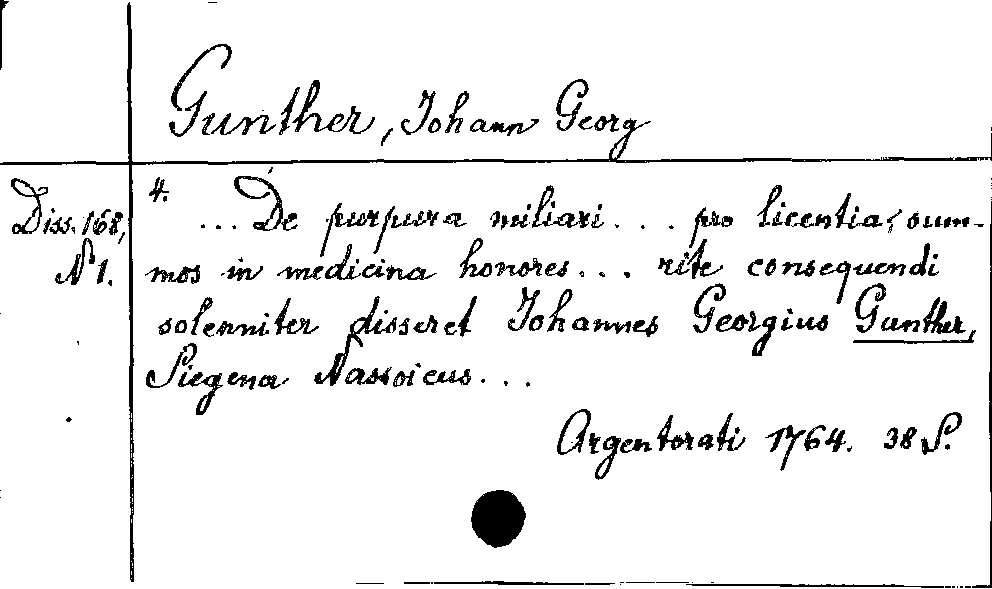 Gunther, Johann Georg
Diss. 168,
N 1.
4.
... De purpura miliari . . . pro licentia, sum-
mos in medicina honores . . . rite consequendi
solenniter disseret Johannes Georgius Gunther,
Siegena Nassoicus . . .
Argentorati 1764. 38 S.